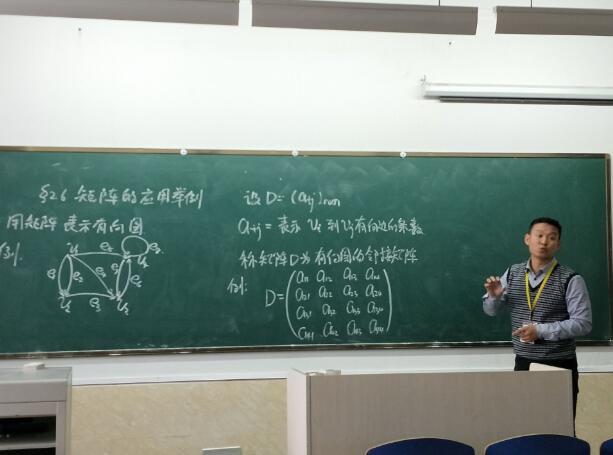 §2.6 矩阵的应用举例
用矩阵表示有向图
例.
设 D=(aij)n×n
aij= 表示 vi 到 vj 有向边的条数
称矩阵D为有向图的邻接矩阵
例:
D=
a11 a12 a13 a14
a21 a22 a23 a24
a31 a32 a33 a34
a41 a42 a43 a44